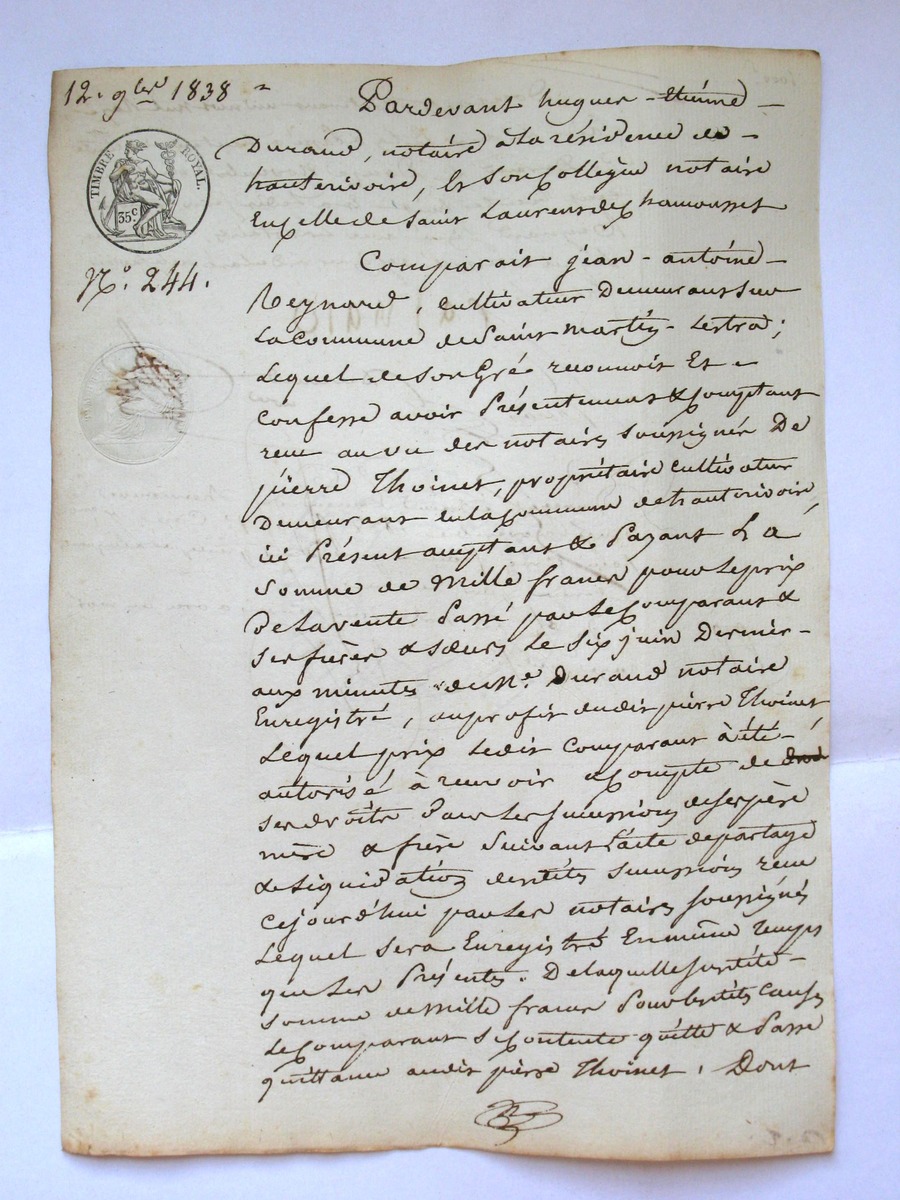 12. 9bre 1838
Pardevant hugues - Etiénne -
TIMBRE ROYAL.
35 c
Durand, notaire à la résidence de -
hauterivoire, & son Collègue notaire
En Celle de Saint Laurent de Chamousset
No. 244.
Comparait jéan - antoine -
Reynard, Cultivateur Demeurant sur
La Commune de Saint Martin - Lestra ;
Lequel de son Gré reconnoit Et -
Confesse avoir Présentement & Comptant
recu au vu des notaires soussignés De
pierre Thoinet, propriétaire Cultivateur
Demeurant en la Commune de hauterivoire
ici Présent acceptant & Payant La
Somme de Mille francs pour Le prix
De La vente Passé par Le Comparant &
ses frères & sœurs Le six juin Dernier -
aux minutes de Me. Durand notaire
Enregistré, au profit dudit pierre Thoinet,
Lequel prix Ledit Comparant à été -
autorisé à recevoir a Compte de
ses droits Dans Les successions de ses père
mère & frère suivant L'acte de partage
& Liquidation desdites successions recu
Cejourd'hui par Les notaires soussignés
Lequel sera Enregistré En même temps
que Les Présentes. De laquelle susdite -
somme de Mille francs Pour Lesdites Causes
Le Comparant se Contente quitte & Passe
quittance audit pièrre Thoinet, Dont